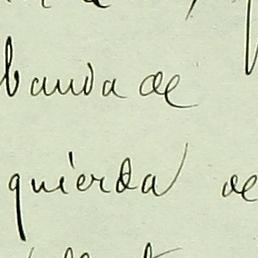 banda de
quierda de